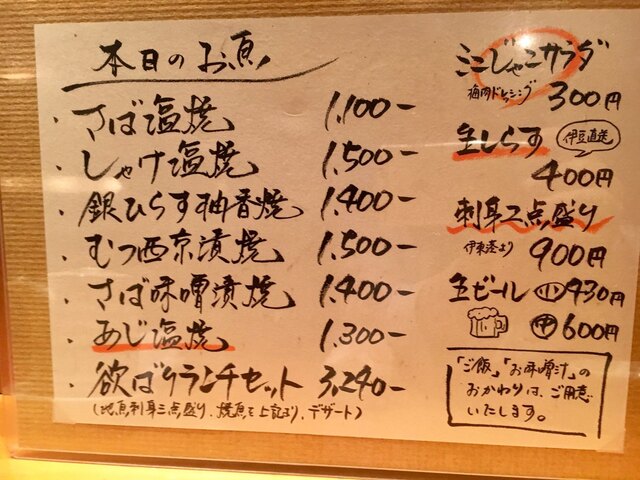 本日のお魚
・さば塩焼 1,100-
・しゃけ塩焼 1,500-
・銀ひらす柚香焼 1,400-
・むつ西京漬焼 1,500-
・さば味噌漬焼 1,400-
・あじ塩焼 1,300-
・欲ばりランチセット 3,240-
(地魚刺身三点盛り、焼魚を上記より、デザート)
ミニじゃこサラダ
梅肉ドレッシング 300円
生しらす 伊豆直送
400円
刺身二点盛り
伊東港より 900円
生ビール 小 430円
中 600円
「ご飯」「お味噌汁」の
おかわりは、ご用意
いたします。